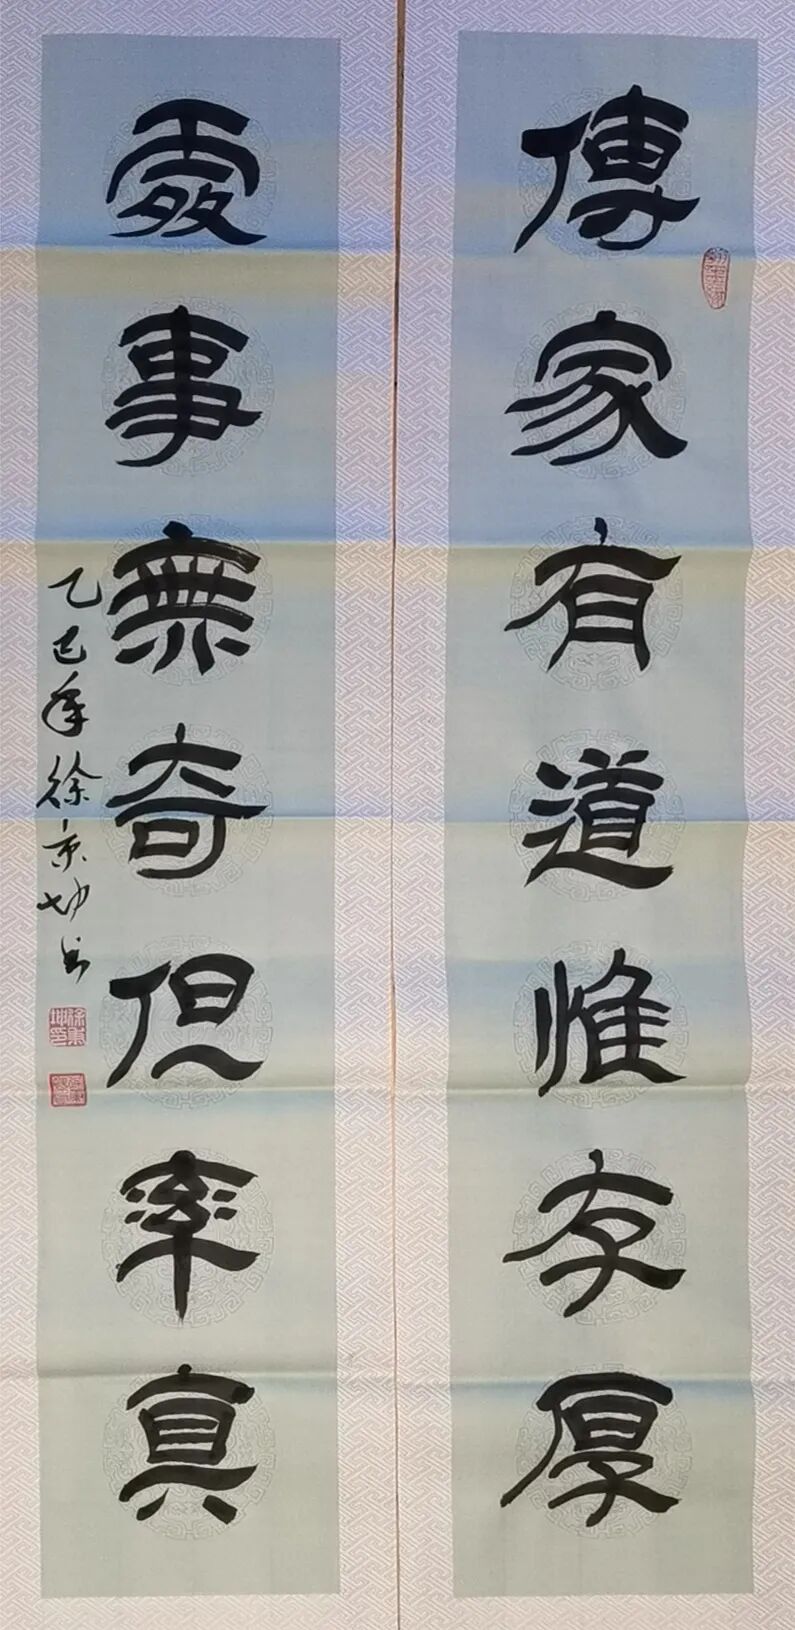 傳家有道惟存厚
處事無奇但率真
乙巳年徐京书